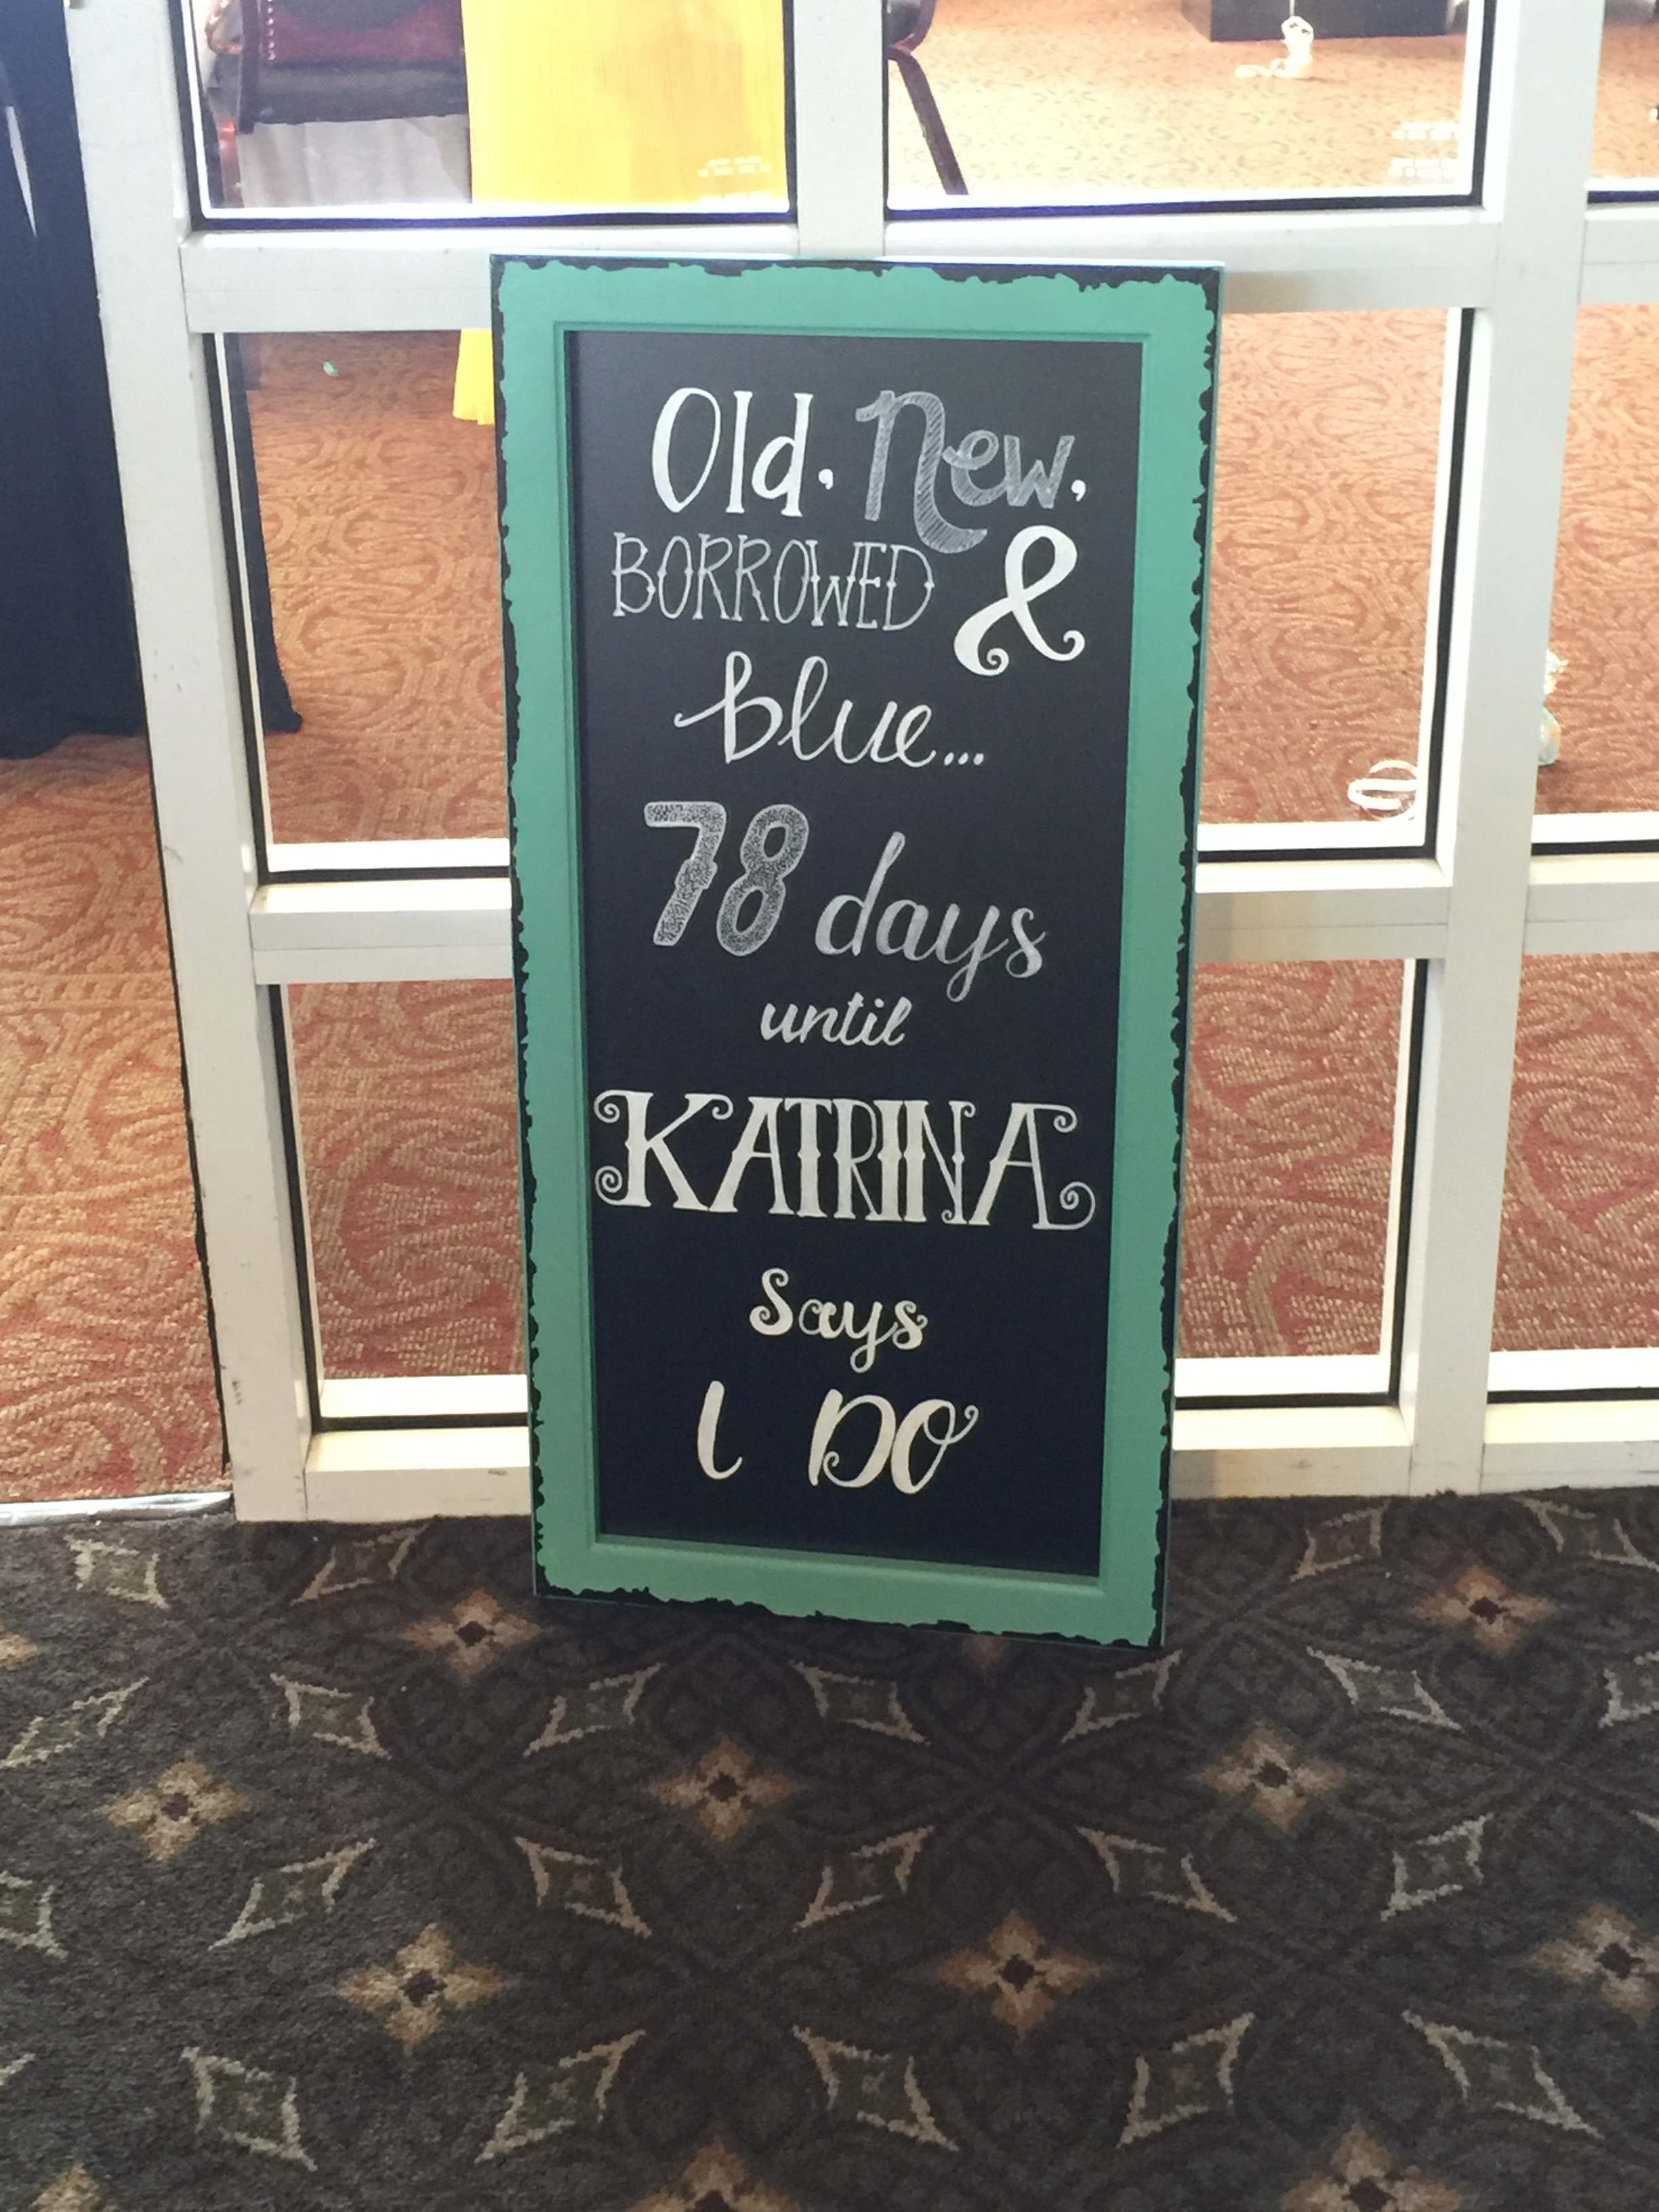 Old, New,
BORROWED &
blue...
78 days
until
KATRINA
says
I DO